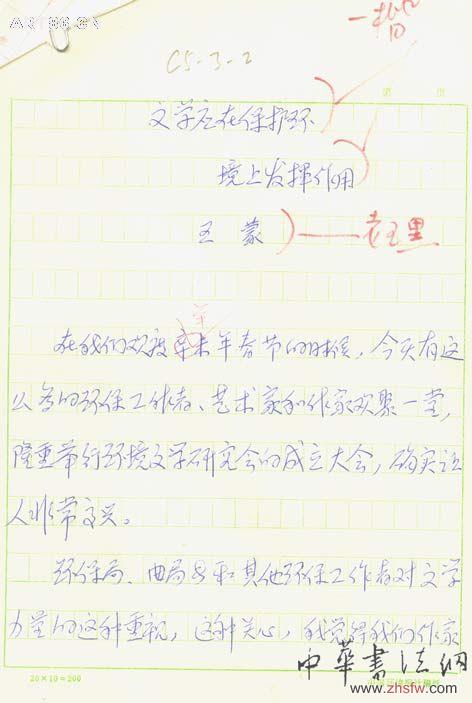 C5-3-2
文学应在保护环
境上发挥作用
王 蒙
老五黑
羊
在我们欢度辛未年春节的时候,今天有这
么多的环保工作者、艺术家和作家欢聚一堂,
隆重举行环境文学研究会的成立大会,确实让
人非常高兴。
环保局、曲局长和其他环保工作者对文学
力量的这种重视,这种关心,我觉得我们作家
20×10=200
中華書法網
www.zhsfw.com